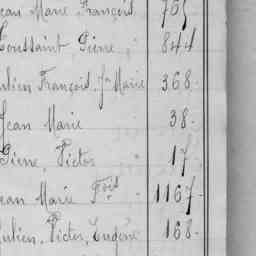 Jean Marie François 765
Toussaint Pierre, 844
Julien François Jn Marie 368.
Jean Marie 38.
Pierre, Victor 17.
Jean Marie Fois 1167.
Julien, Victor, Eugène 168.